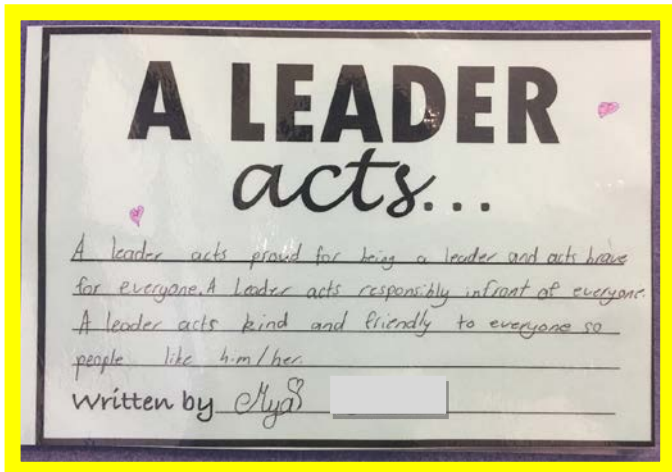 A LEADER
acts...
A leader acts proud for being a leader and acts brave
for everyone. A leader acts responsibly infront of everyone.
A leader acts kind and friendly to everyone so
people like him/her.
Written by Mya